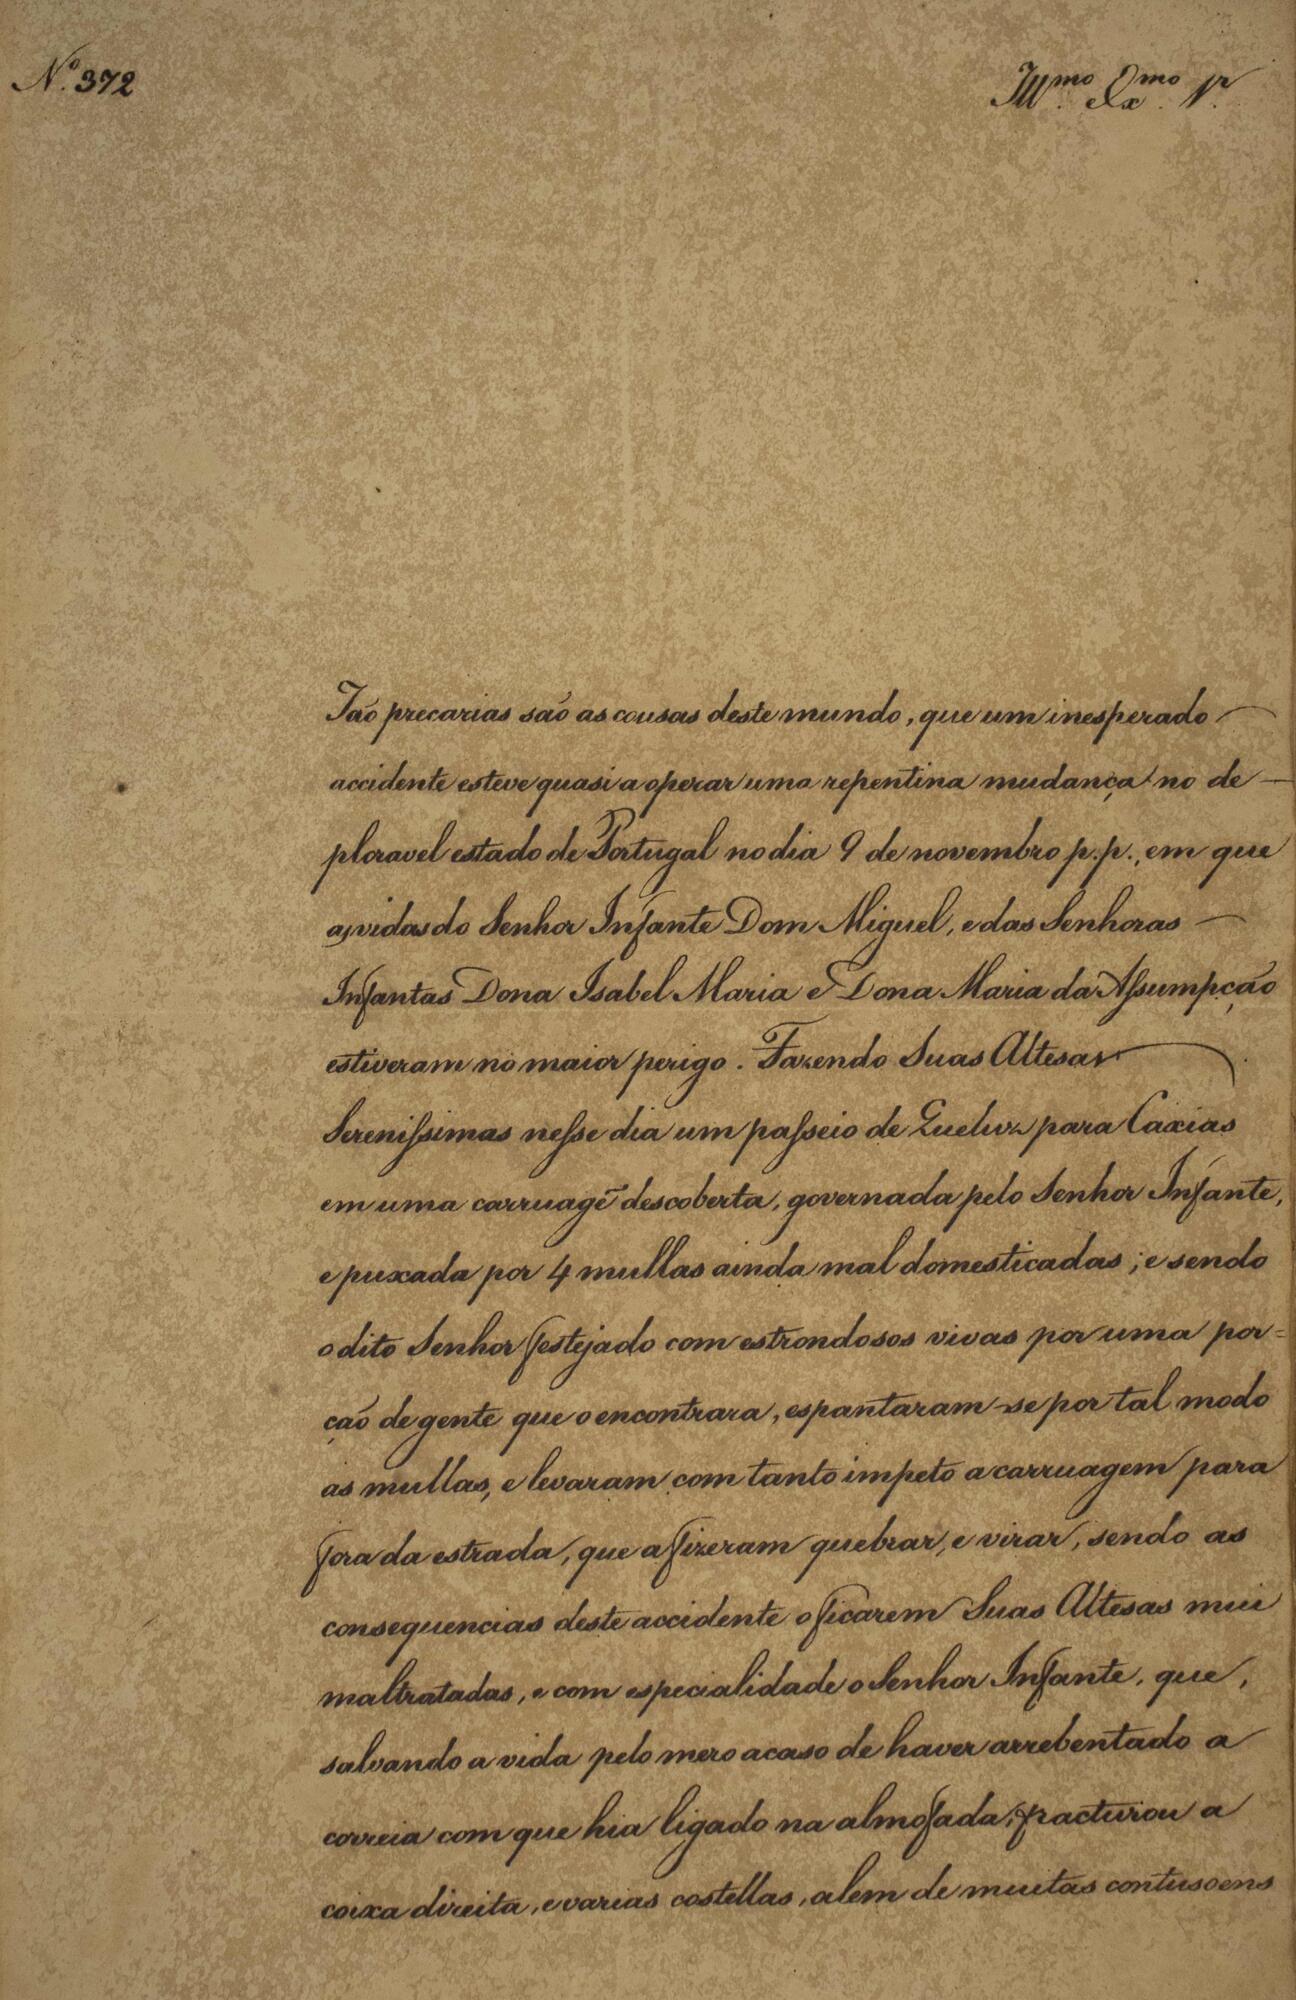 Nº. 372
Illmo. Exmo. Sr.
Tão precarias são as cousas deste mundo, que um inesperado
accidente esteve quasi a operar uma repentina mudança no de-
ploravel estado de Portugal no dia 9 de novembro p.p., em que
as vidas do Senhor Infante Dom Miguel, e das Senhoras
Infantas Dona Isabel Maria e Dona Maria da Assumpção
estiveram no maior perigo. Fazendo Suas Altesas
Serenissimas nesse dia um passeio de Queluz para Caxias
em uma carruagẽ descoberta, governada pelo Senhor Infante,
e puxada por 4 mullas ainda mal domesticadas; e sendo
o dito Senhor festejado com estrondosos vivas por uma por=
ção de gente que o encontrara, espantaram-se por tal modo
as mullas, e levaram com tanto impeto a carruagem para
fora da estrada, que a fizeram quebrar, e virar, sendo as
consequencias deste accidente o ficarem Suas Altesas mui
maltratadas, e com especialidade o Senhor Infante, que,
salvando a vida pelo mero acaso de haver arrebentado a
correia com que hia ligado na almofada, fracturou a
coixa direita, e varias costellas, alem de muitas contusoens